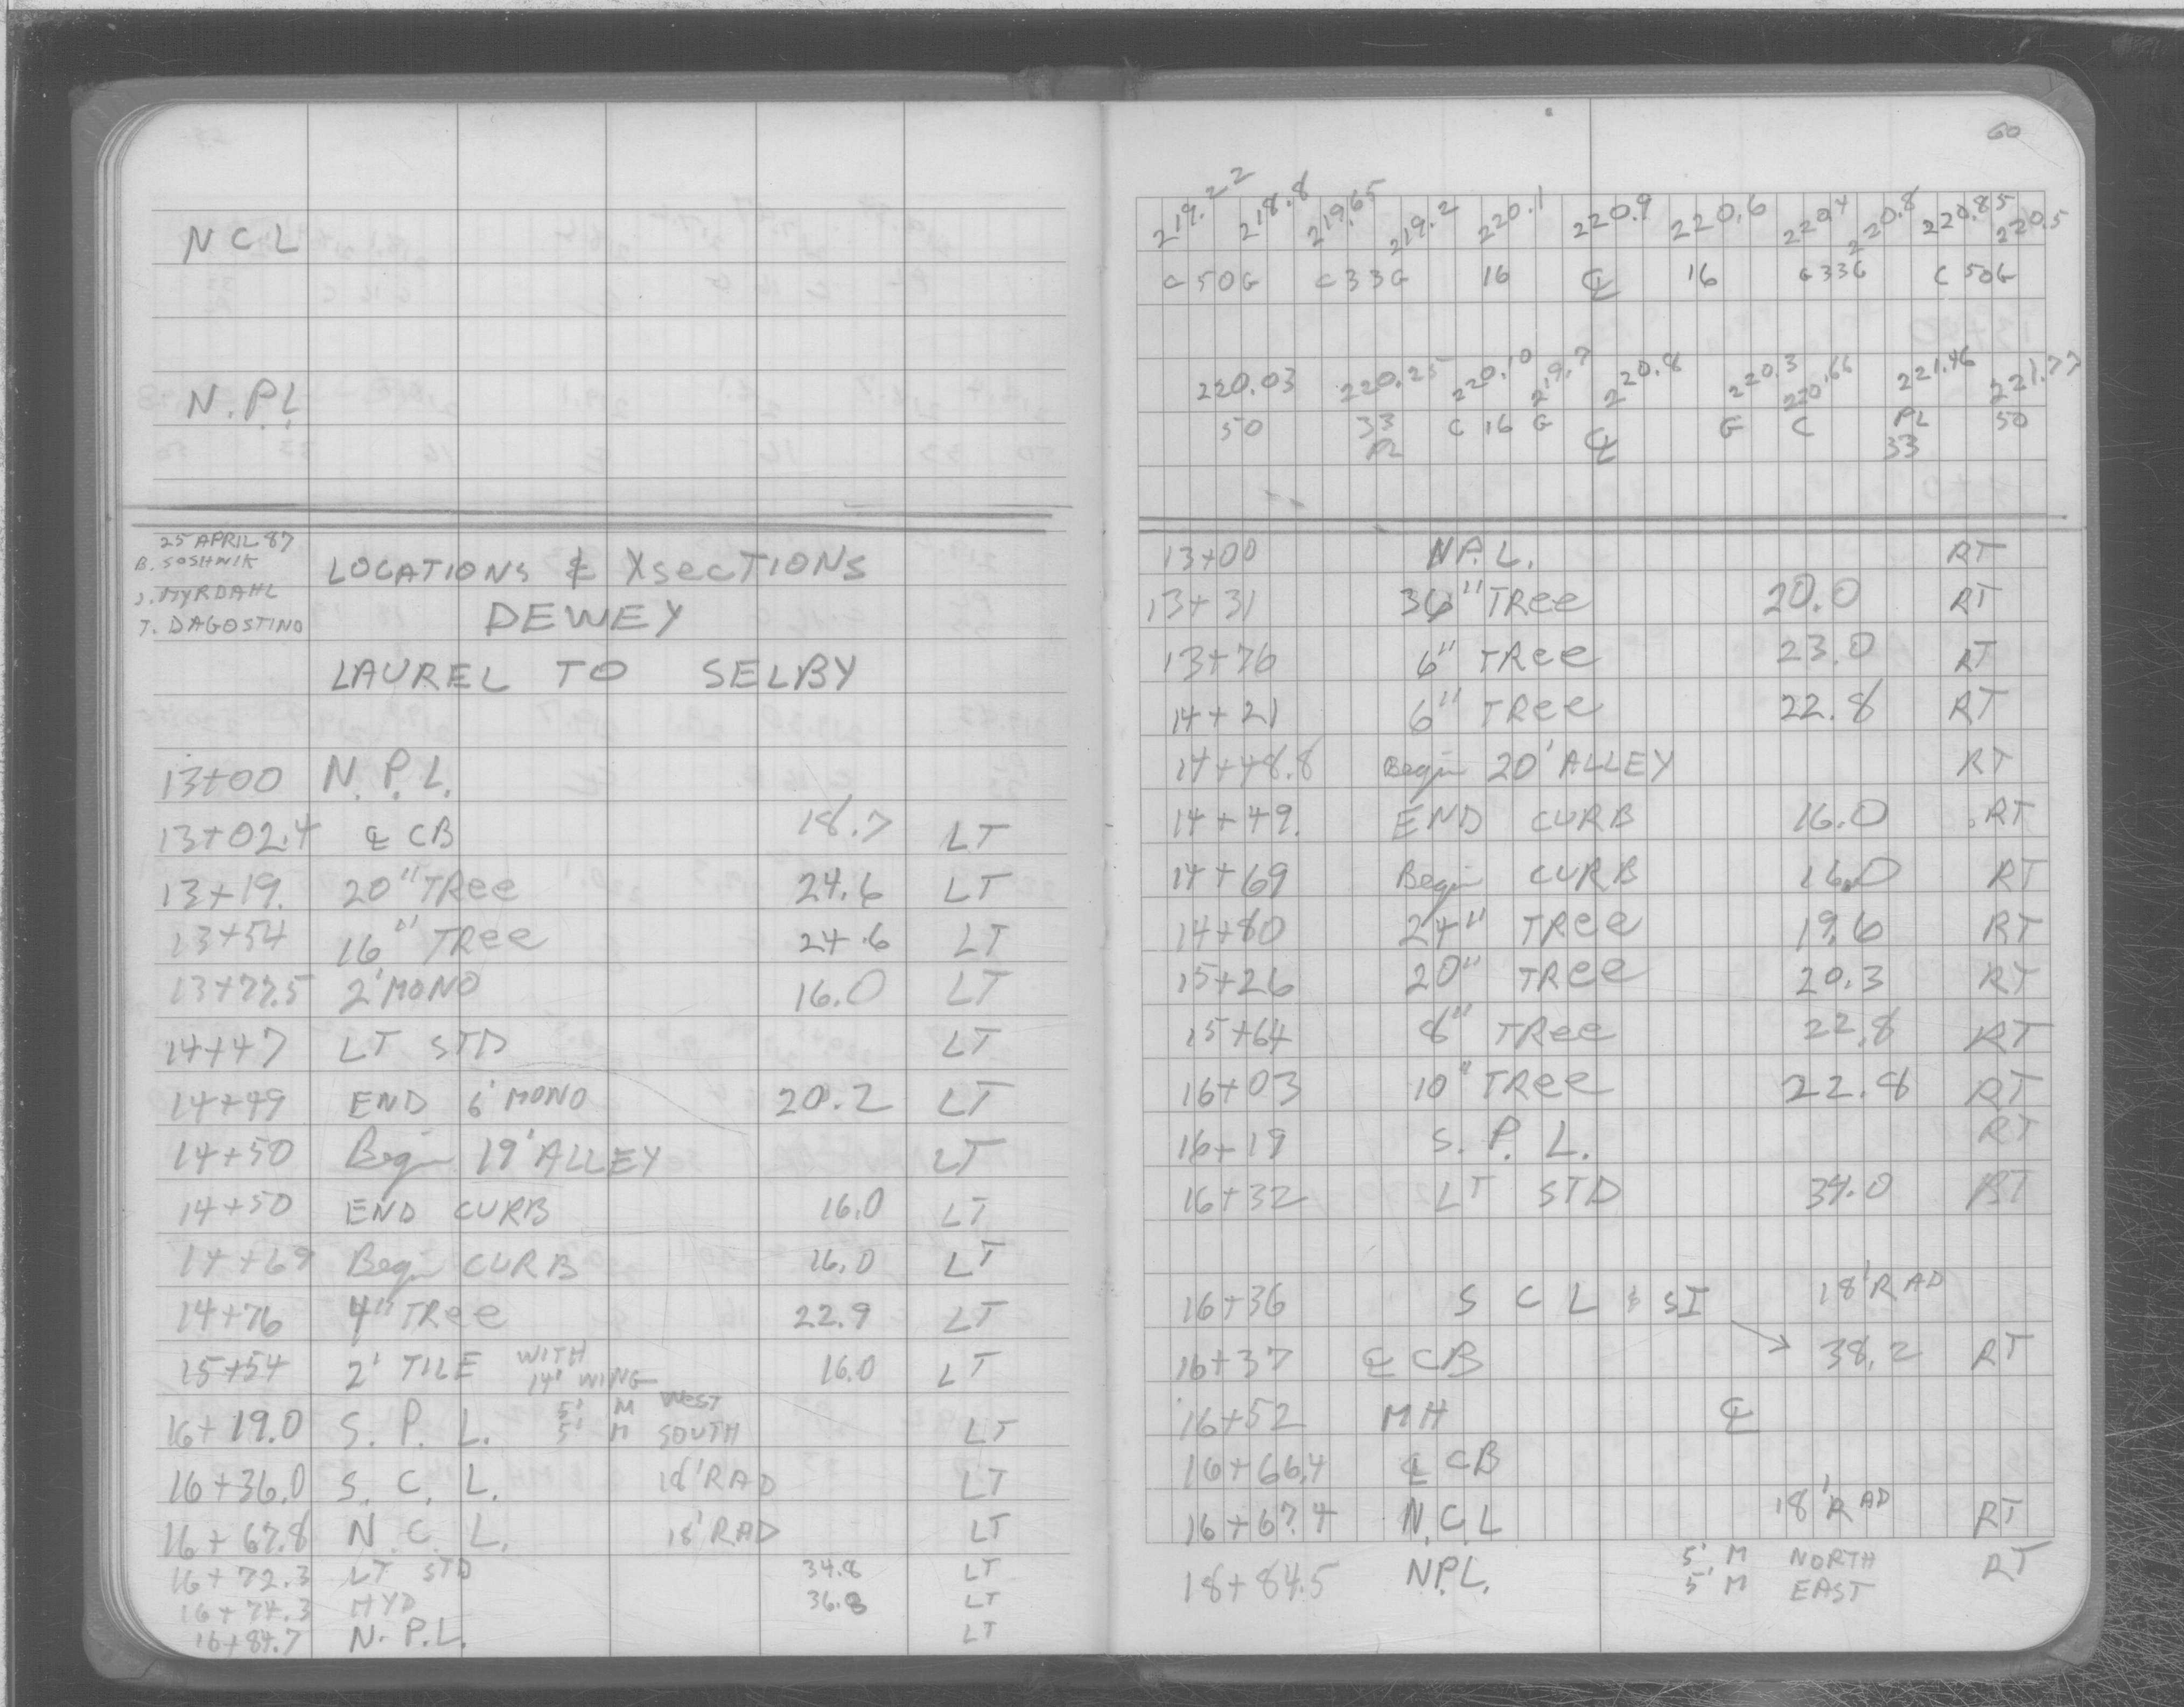 NCL
N.P.L
25 APRIL 87
B. SOSHNIK
J. MYRDAHL
T. DAGOSTINO
LOCATIONS & XSECTIONS
DEWEY
LAUREL TO SELBY
13+00 N.P.L.
13+02.4 ℄ CB 18.7 LT
13+19. 20" TRee 24.6 LT
13+54 16" TRee 24.6 LT
13+77.5 2' MONO 16.0 LT
14+47 LT STD LT
14+49 END 6' MONO 20.2 LT
14+50 Begin 19' ALLEY LT
14+50 END CURB 16.0 LT
14+69 Begin CURB 16.0 LT
14+76 4" TRee 22.9 LT
15+54 2' TILE WITH 14' WING 16.0 LT
16+19.0 S. P. L. 5' M WEST 5' M SOUTH LT
16+36.0 S. C. L. 18' RAD LT
16+67.8 N. C. L. 18' RAD LT
16+72.3 LT STD 34.8 LT
16+74.3 HYD 36.8 LT
16+84.7 N. P.L. LT
60
219.22 218.8 219.65 219.2 220.1 220.9 220.6 220.4 220.8 220.85 220.5
C 50 G C 33 G 16 ℄ 16 G 33 G C 50 G
220.03 220.25 220.10 219.7 220.8 220.3 220.66 221.46 221.77
50 33 C 16 G ℄ G C PL 50
PL 33
13+00 N.P.L. RT
13+31 36" TRee 20.0 RT
13+76 6" TRee 23.0 RT
14+21 6" TRee 22.8 RT
14+48.8 Begin 20' ALLEY RT
14+49. END CURB 16.0 RT
14+69 Begin CURB 16.0 RT
14+80 24" TRee 19.6 RT
15+26 20" TRee 20.3 RT
15+64 8" TRee 22.8 RT
16+03 10" TRee 22.8 RT
16+19 S. P. L. RT
16+32 LT STD 34.0 RT
16+36 S C L & SI 18' RAD
16+37 ℄ CB 38.2 RT
16+52 MH ℄
16+66.4 ℄ CB
16+67.4 N.C.L 18' RAD RT
18+84.5 N.P.L. 5' M NORTH RT
5' M EAST